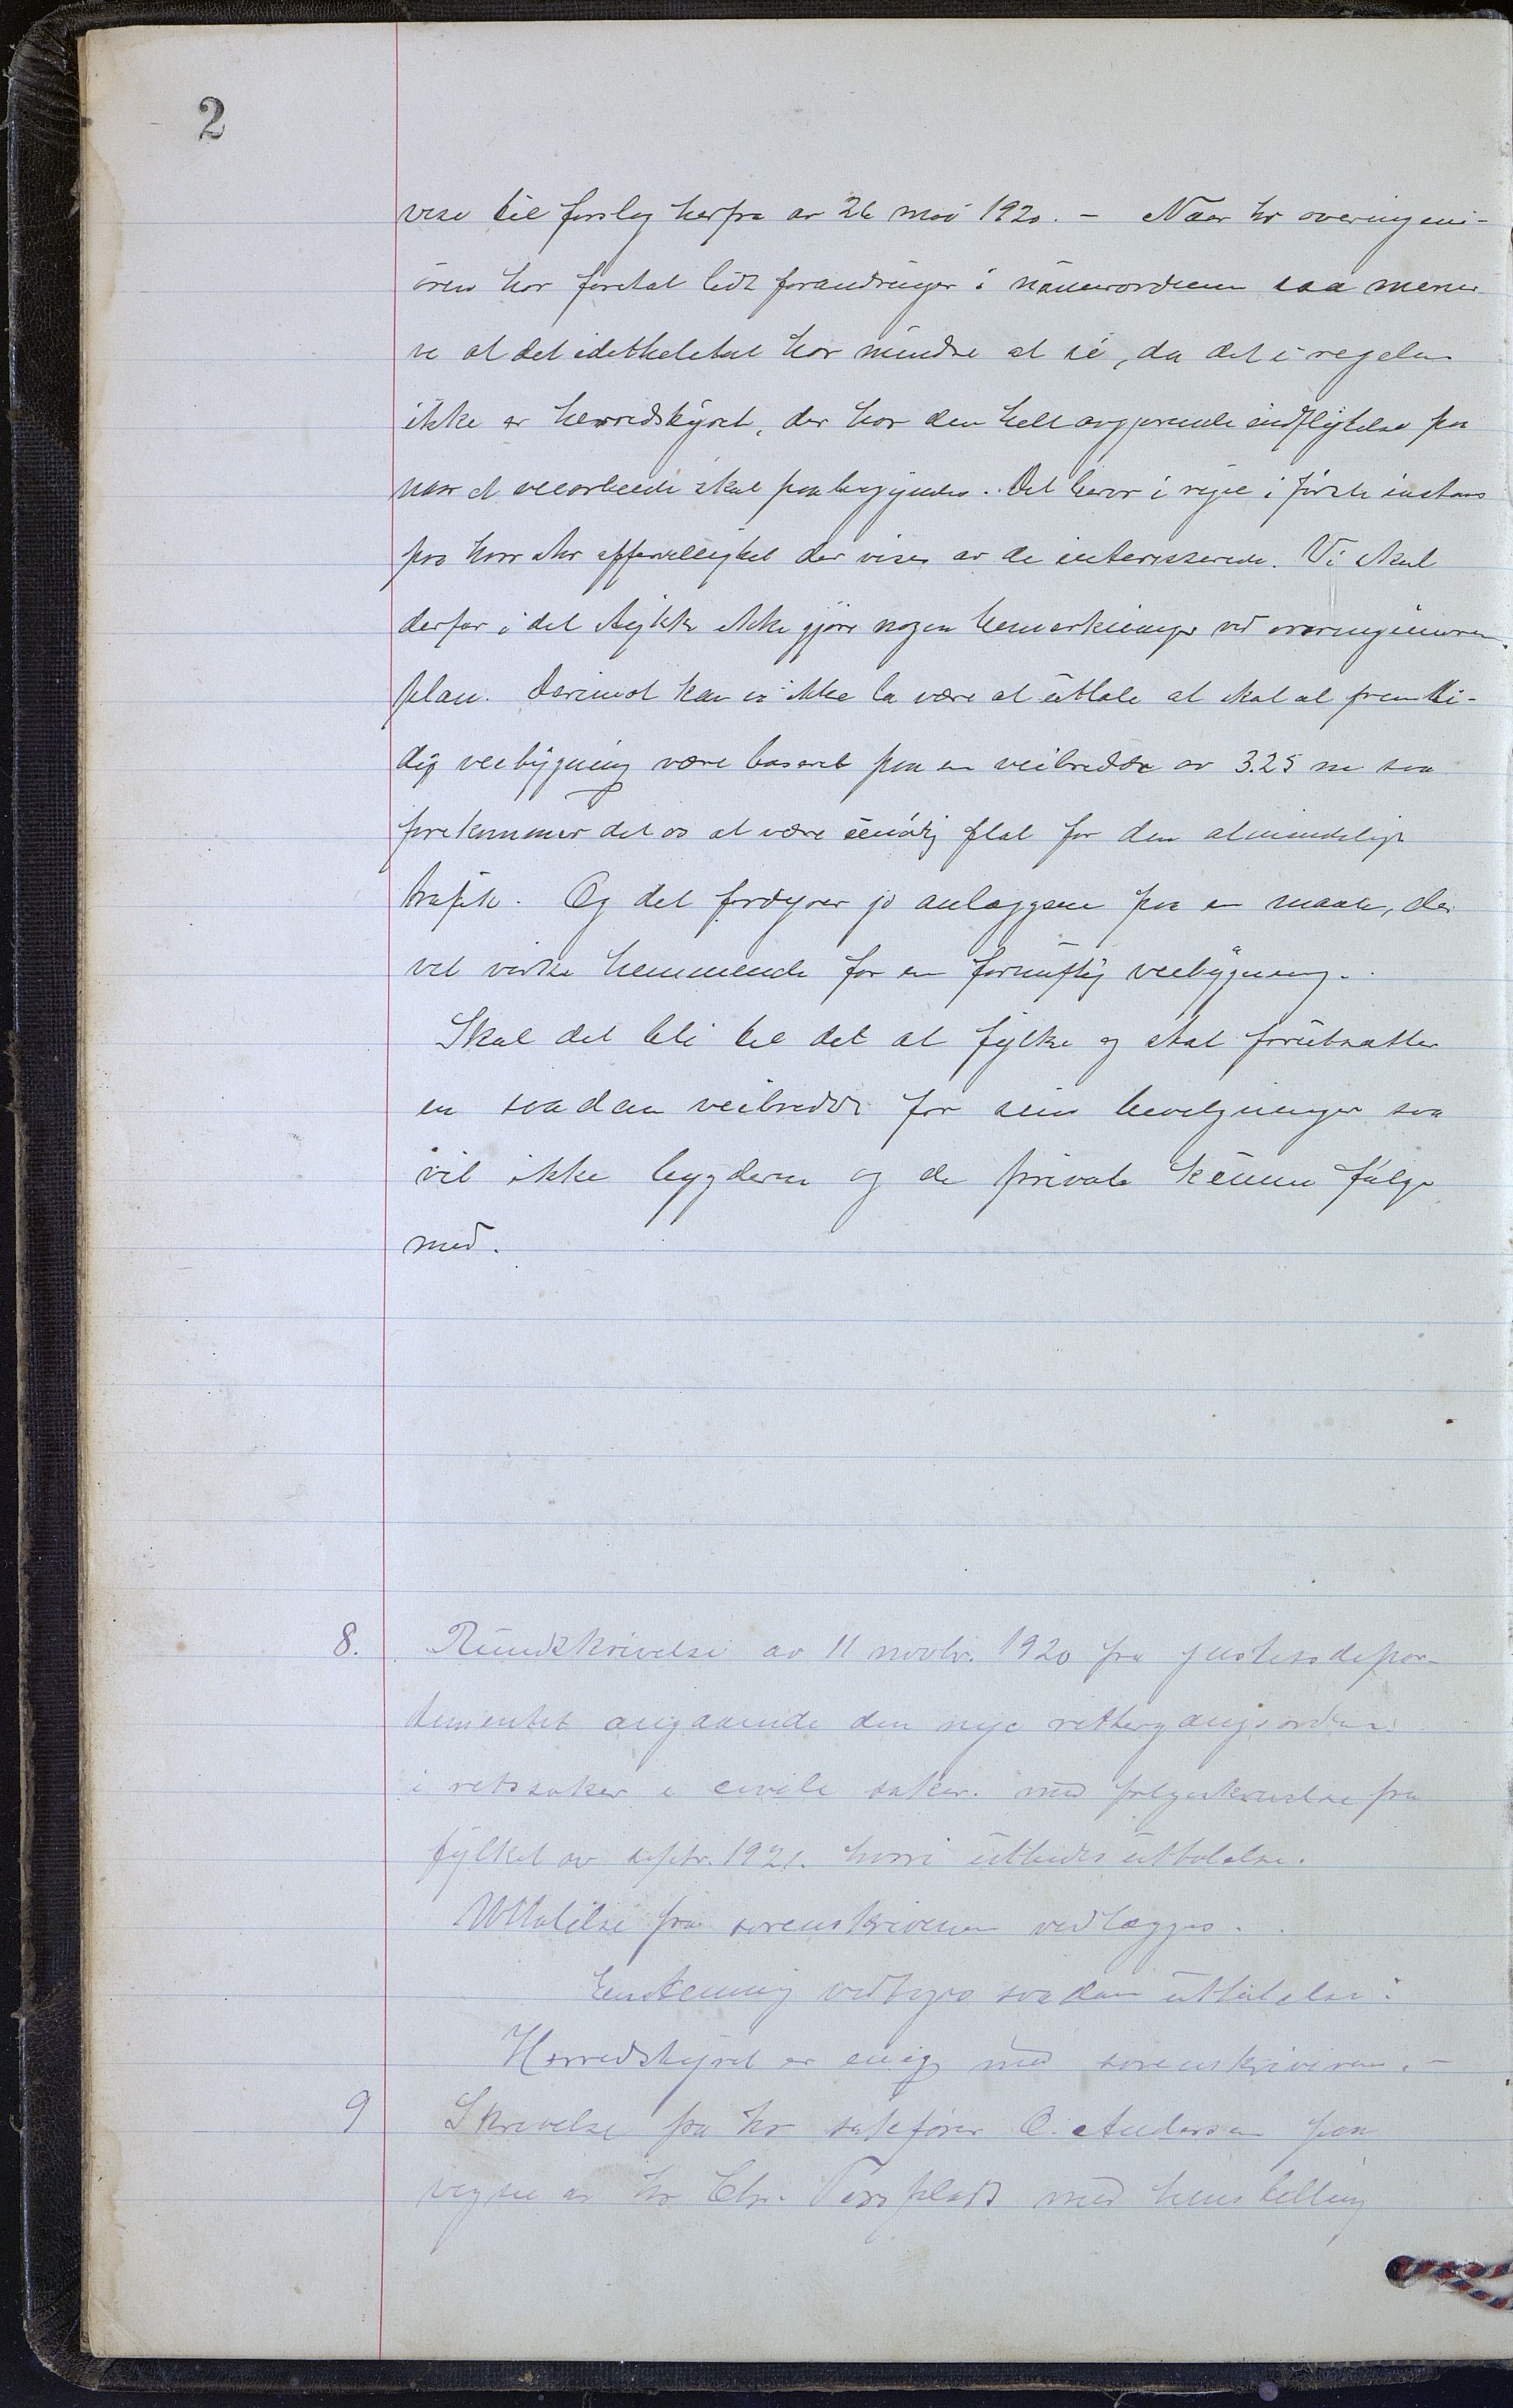 2
vise til forslag herfra av 26 mai 1920. – Naar hr overingeni-
ören har foretat lidt forandringer i nummerordenen saa mener
vi at det idetheletat har mindre at si, da det i regelen
ikke er herredsstyret, der har den helt avgjørende indflytelse paa
naar et veiarbeide skal paabegyndes. Det beror i regel i förste instans
paa hvor stor offervillighet der vises av de interesserede. Vi skal
derfor i det stykke ikke gjöre nogen bemerkninger ved overingeniörens
plan. Derimot kan vi ikke la være at uttale at skal al fremti-
dig veibygning være baseret paa en veibredde av 3.25 m saa
forekommer det os at være unödig flot for den almindelige
trafik. Og det fordyrer jo anlæggene paa en maate, der
vil virke hemmende for en fornuftig veibygning.
Skal det bli til det at fylke og stat forutsætter
en saadan veibredde for sine bevilgninger saa
vil ikke bygderne og de private kunne fölge
med.
8. Rundskrivelse av 11 novbr. 1920 fra justisdepar-
tementet angaaende den nye rettergangsorden
i retssaker i civile saker. med fölgeskrivelse fra
fylket av septr. 1921. hvori utbedes uttalelse.
Uttalelse fra sorenskriveren vedlægges.
Enstemmig vedtages saadan uttalelse:
Herredsstyret er enig med sorenskriveren. –
9 Skrivelse fra hr sakförer O. Andersen paa
vegne av hr Chr. med henstilling